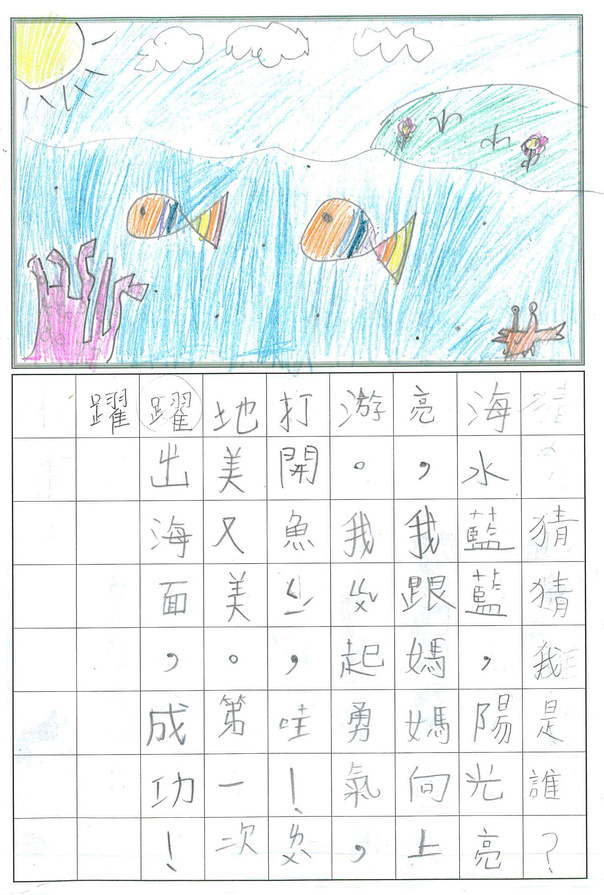 猜猜我是誰？
海水藍藍，陽光亮
亮，我跟媽媽向上
游。我ㄍㄨˇ起勇氣，
打開魚ㄑㄧˊ，哇！ㄌㄨˋ
地美又美。第一次
躍出海面，成功！
躍